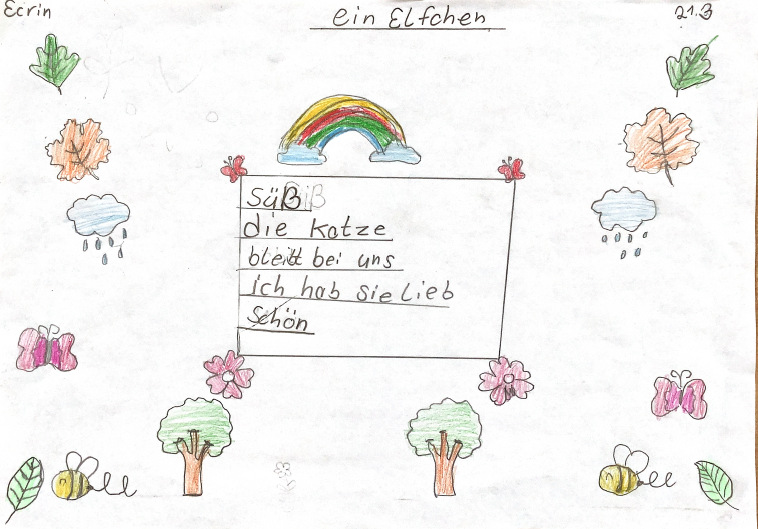 Ecrin
ein Elfchen
21.3
süß
die Katze
bleibt bei uns
ich hab sie Lieb
schön